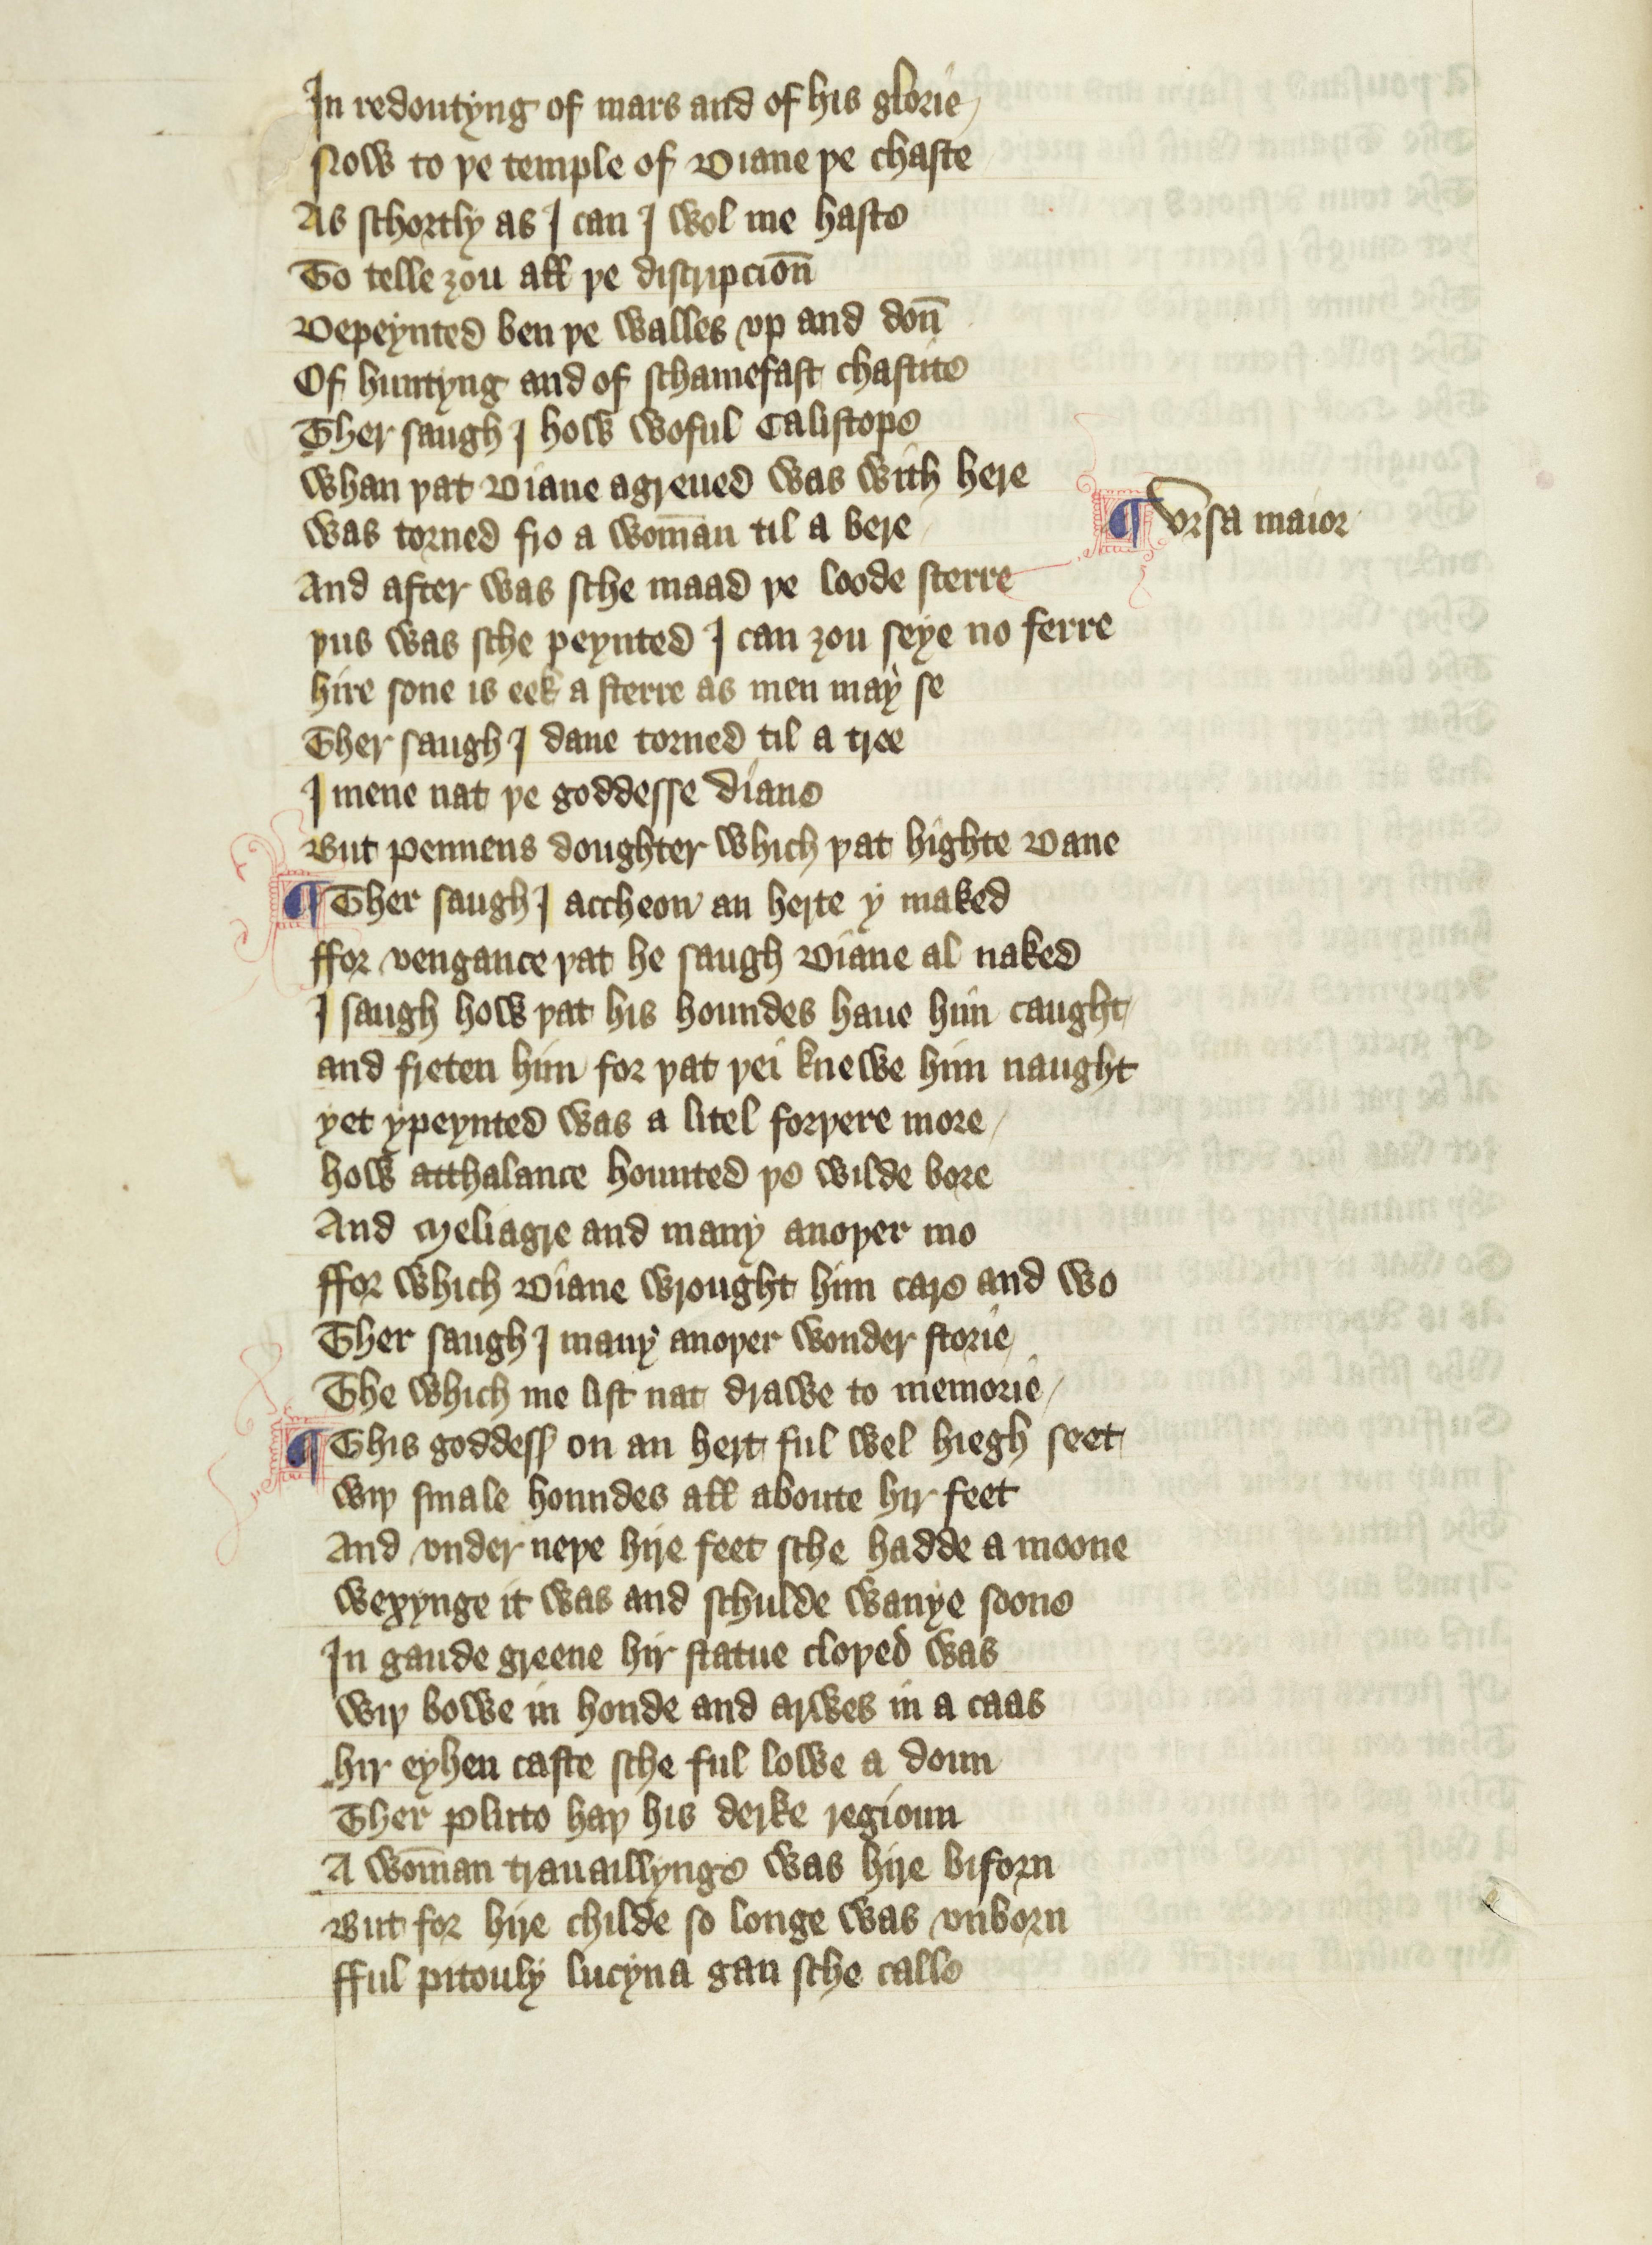 In redoutyng of mars and of his glorie
Now to þe temple of Diane þe chaste
As schortly as I can I wol me haste
To telle ȝou all þe discripcion̄
Depeynted ben þe walles vp and don̄
Of huntyng and of schamefast chastite
Ther saugh I how woful Calistope
whan þat Diane agreued was with here
was torned fro a wom̄an til a bere
¶ vrsa maior
And after was sche maad þe loode sterre
þus was sche peynted I can ȝou seye no ferre
hire sone is eek a sterre as men may se
Ther saugh I dane torned til a tree
I mene nat þe goddesse diane
But pennens doughter which þat highte Dane
¶ Ther saugh I attheon an herte y maked
ffor vengance þat he saugh Diane al naked
I saugh how þat his houndes haue him caught
and freten him for þat þei knewe him naught
yet ypeynted was a litel forþere more
how atthalance hounted þe wilde bore
And Meliagre and many anoþer mo
ffor which Diane wrought him care and wo
Ther saugh I many anoþer wonder storie
The which me list nat drawe to memorie
¶ This goddess on an hert ful wel hiegh seet
wiþ smale houndes all aboute hir feet
And vnder neþe hire feet sche hadde a moone
wexynge it was and schulde wanye soone
In gaude greene hir statue cloþed was
wiþ bowe in honde and arwes in a caas
hir eyhen caste sche ful lowe a doun
Ther Pluto haþ his derke regioun
A wom̄an trauaillynge was hire biforn
But for hire childe so longe was vnborn
fful pitously lucyna gan sche calle